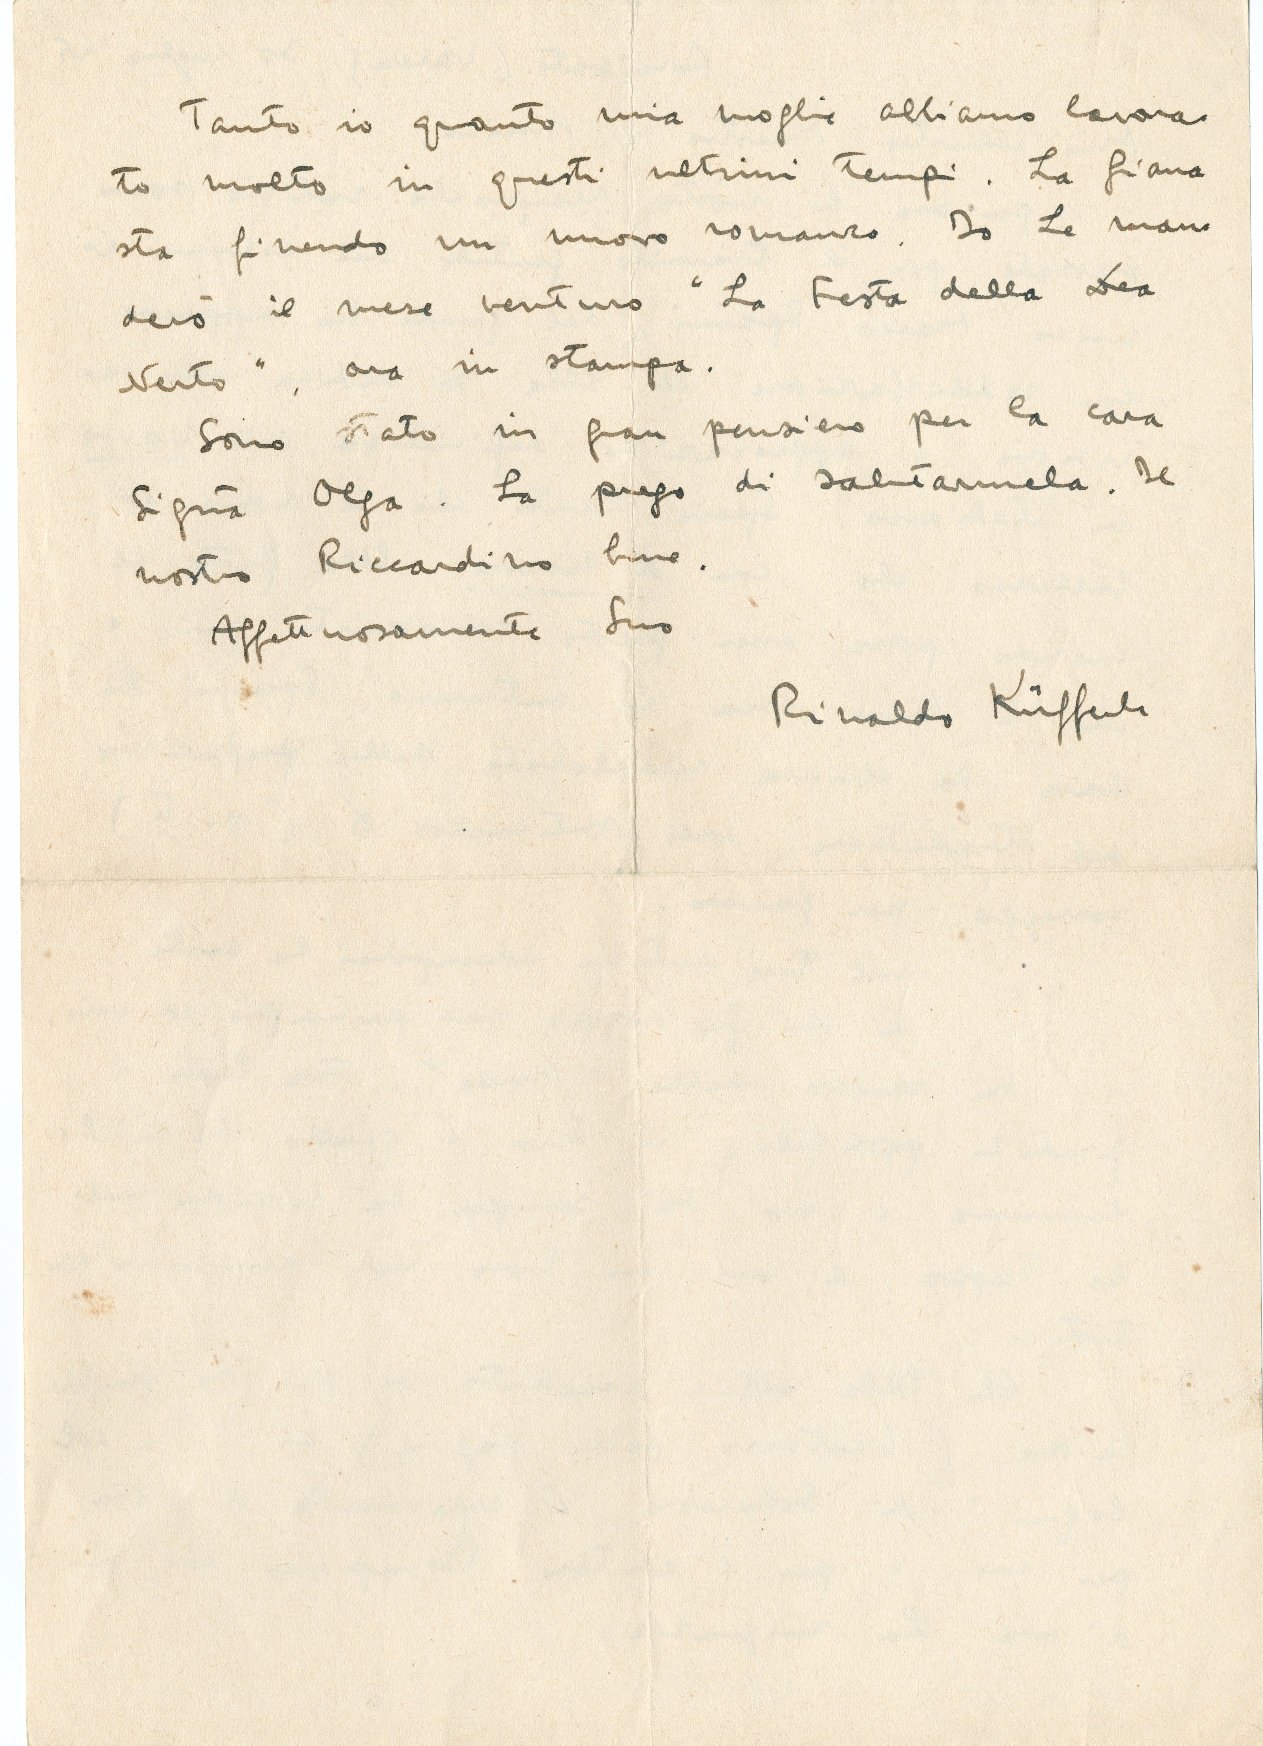 Tanto io quanto mia moglie abbiamo lavora-
to molto in questi ultimi tempi. La Giana
sta finendo un nuovo romanzo. Io Le man-
derò il mese venturo "La Festa della Dea
Nerto", ora in stampa.
Sono stato in gran pensiero per la cara
Sign.a Olga. La prego di salutarmela. Il
nostro Riccardino bene.
Affettuosamente Suo
Rinaldo Küfferle